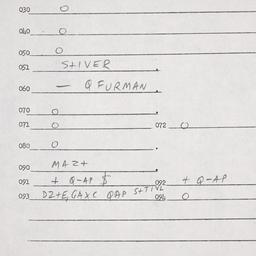 030 O
040 O
050 O
051 STIVER.
060 — Q FURMAN.
070 O
071 O 072 O
080 O
090 MAZ+
091 + Q-AP $ 092 + Q-AP
093 DZ+E, GAXC QAP S+TIVL 094 O